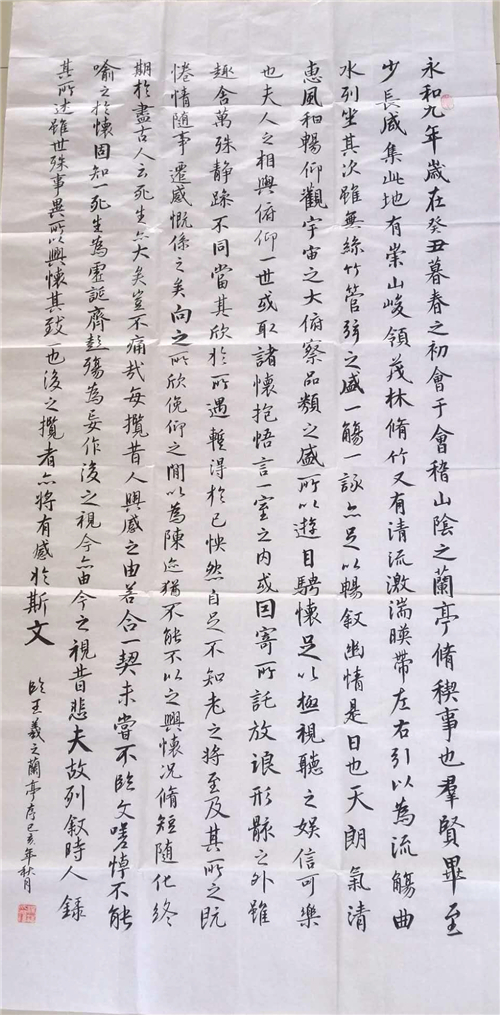 永和九年歲在癸丑暮春之初會于會稽山陰之蘭亭脩稧事也羣賢畢至
少長咸集此地有崇山峻領茂林脩竹又有清流激湍暎帶左右引以為流觴曲
水列坐其次雖無絲竹管弦之盛一觴一詠亦足以暢叙幽情是日也天朗氣清
惠風和暢仰觀宇宙之大俯察品類之盛所以遊目騁懷足以極視聽之娱信可樂
也夫人之相與俯仰一世或取諸懷抱悟言一室之内或因寄所託放浪形骸之外雖
趣舍萬殊静躁不同當其欣於所遇輕得於己怏然自足不知老之將至及其所之既
惓情隨事遷感慨係之矣向之所欣俛仰之間以為陳迹猶不能不以之興懷况脩短随化終
期於盡古人云死生亦大矣豈不痛哉每攬昔人興感之由若合一契未嘗不臨文嗟悼不能
喻之於懷固知一死生為虚誕齊彭殤為妄作後之視今亦由今之視昔悲夫故列叙時人錄
其所述雖世殊事異所以興懷其致一也後之攬者亦將有感於斯文
临王羲之蘭亭序己亥年秋月